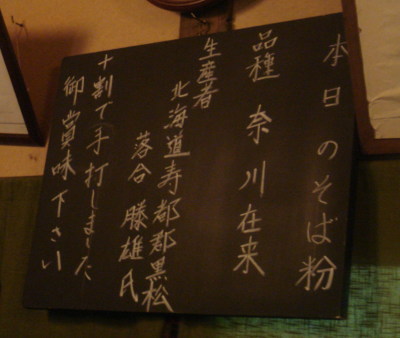 本日のそば粉
品種 奈川在来
生産者
北海道寿都郡黒松
落合 勝雄氏
十割で手打しました
御賞味下さい